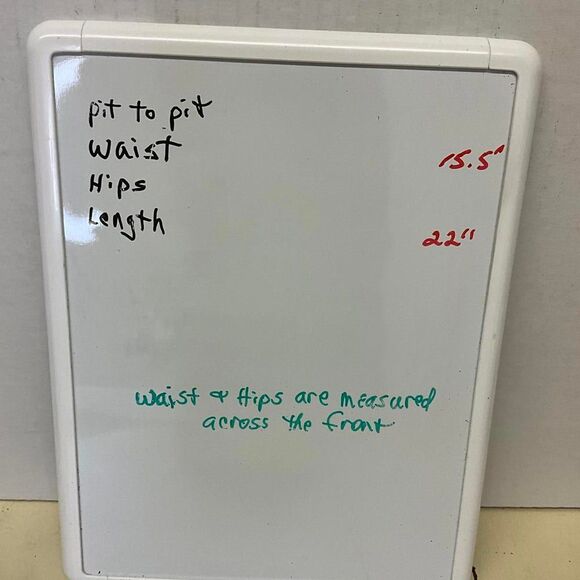 pit to pit
Waist 15.5"
Hips
Length 22"
Waist & Hips are measured
across the front